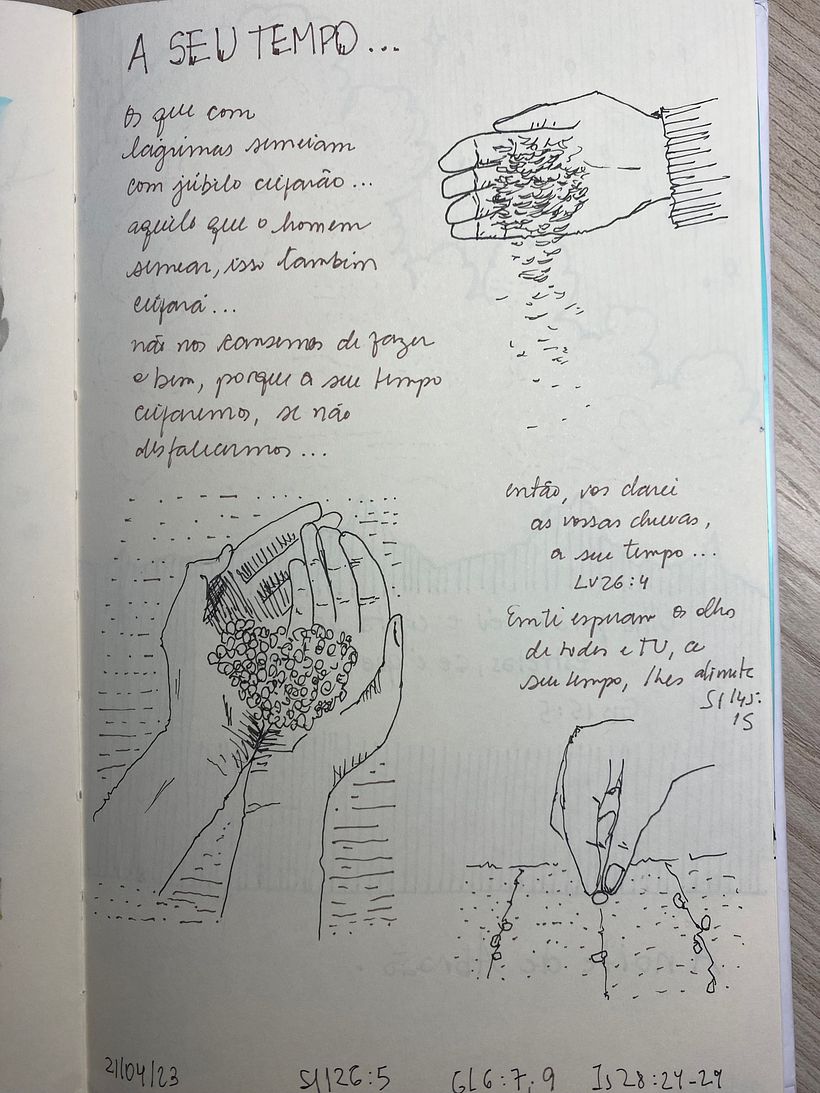 A SEU TEMPO...
Os que com
lágrimas semeiam
com júbilo ceifarão...
aquilo que o homem
semear, isso também
ceifará...
não nos cansemos de fazer
o bem, porque a seu tempo
ceifaremos, se não
desfalecermos...
então, vos darei
as vossas chuvas,
a seu tempo...
LV26:4
Em ti esperam os olhos
de todos e TU, a
seu tempo, lhes alimente
Sl 145:
15
21/04/23
Sl126:5
Gl6:7,9
Is28:24-29